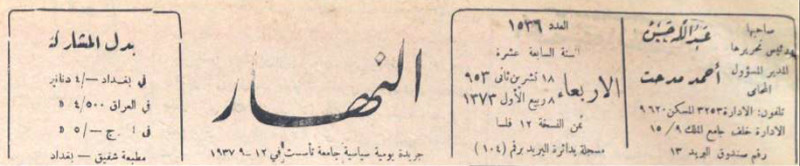 صاحبها
ورئيس تحريرها
عبد الله حسن
المدير المسؤول
المحامي
أحمد مدحت
تلفون: الادارة ٣٢٥٣ المسكن ٩٦٢٠
الادارة خلف جامع الملك ٩/ ١٥
رقم صندوق البريد ١٣
العدد ١٥٣٦
السنة السابعة عشرة
الاربعاء
١٨ تشرين ثاني ٩٥٣
٨ ربيع الأول ١٣٧٣
ثمن النسخة ١٢ فلسا
مسجلة بدائرة البريد برقم (١٠٤)
النهار
جريدة يومية سياسية جامعة تأسست في ١٢-٩-١٩٣٧
بدل المشاركة
في بغداد —/٤ دنانير
في العراق ٤/٥٠٠ »
—/٥ »
مطبعة شفيق - بغداد